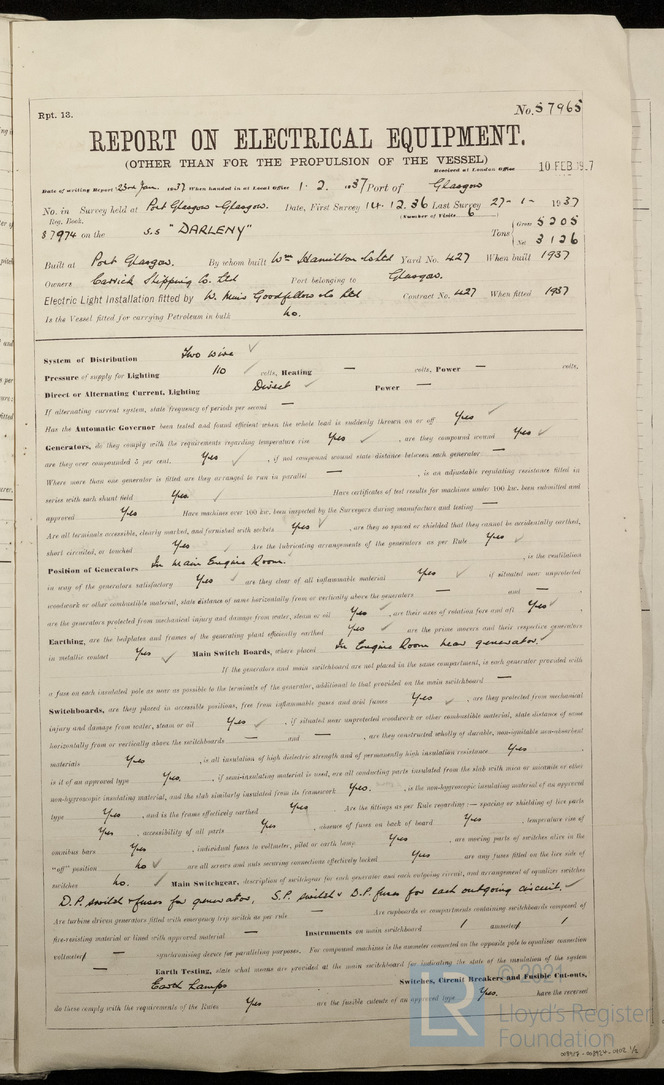 Rpt. 13.
No. 57965
REPORT ON ELECTRICAL EQUIPMENT.
(OTHER THAN FOR THE PROPULSION OF THE VESSEL)
Received at London Office 10 FEB 1937
Date of writing Report 23rd Jan. 1937 When handed in at Local Office 1. 2. 1937 Port of Glasgow
No. in Survey held at Port Glasgow & Glasgow. Date, First Survey 14. 12. 36 Last Survey 27 - 1 - 1937
Reg. Book. (Number of Visits 6)
37974 on the S.S "DARLENY" Tons { Gross 5205
Net 3126
Built at Port Glasgow. By whom built Wm Hamilton & Co Ltd Yard No. 427 When built 1937
Owners Carrick Shipping Co. Ltd Port belonging to Glasgow.
Electric Light Installation fitted by W. Muir Goodfellow & Co Ltd Contract No. 427 When fitted 1937
Is the Vessel fitted for carrying Petroleum in bulk No.
System of Distribution Two wire
Pressure of supply for Lighting 110 volts, Heating — volts, Power — volts,
Direct or Alternating Current, Lighting Direct Power —
If alternating current system, state frequency of periods per second —
Has the Automatic Governor been tested and found efficient when the whole load is suddenly thrown on or off Yes
Generators, do they comply with the requirements regarding temperature rise Yes , are they compound wound Yes
are they over compounded 5 per cent. Yes , if not compound wound state distance between each generator —
Where more than one generator is fitted are they arranged to run in parallel — , is an adjustable regulating resistance fitted in
series with each shunt field Yes. Have certificates of test results for machines under 100 kw. been submitted and
approved Yes Have machines over 100 kw. been inspected by the Surveyors during manufacture and testing —
Are all terminals accessible, clearly marked, and furnished with sockets Yes , are they so spaced or shielded that they cannot be accidentally earthed,
short circuited, or touched Yes Are the lubricating arrangements of the generators as per Rule Yes
Position of Generators In Main Engine Room. , is the ventilation
in way of the generators satisfactory Yes are they clear of all inflammable material Yes if situated near unprotected
woodwork or other combustible material, state distance of same horizontally from or vertically above the generators — and — ,
are the generators protected from mechanical injury and damage from water, steam or oil Yes , are their axes of rotation fore and aft Yes
Earthing, are the bedplates and frames of the generating plant efficiently earthed Yes are the prime movers and their respective generators
in metallic contact Yes Main Switch Boards, where placed In Engine Room near generator.
If the generators and main switchboard are not placed in the same compartment, is each generator provided with
a fuse on each insulated pole as near as possible to the terminals of the generator, additional to that provided on the main switchboard —
Switchboards, are they placed in accessible positions, free from inflammable gases and acid fumes Yes , are they protected from mechanical
injury and damage from water, steam or oil Yes , if situated near unprotected woodwork or other combustible material, state distance of same
horizontally from or vertically above the switchboards — and — , are they constructed wholly of durable, non-ignitable non-absorbent
materials Yes , is all insulation of high dielectric strength and of permanently high insulation resistance Yes ,
is it of an approved type Yes. , if semi-insulating material is used, are all conducting parts insulated from the slab with mica or micanite or other
non-hygroscopic insulating material, and the slab similarly insulated from its framework Yes. , is the non-hygroscopic insulating material of an approved
type Yes , and is the frame effectively earthed Yes Are the fittings as per Rule regarding:— spacing or shielding of live parts
Yes , accessibility of all parts Yes , absence of fuses on back of board Yes , temperature rise of
omnibus bars Yes , individual fuses to voltmeter, pilot or earth lamp Yes , are moving parts of switches alive in the
"off" position No are all screws and nuts securing connections effectively locked Yes are any fuses fitted on the live side of
switches No. Main Switchgear, description of switchgear for each generator and each outgoing circuit, and arrangement of equalizer switches
D.P. switch & fuses for generator, S.P. switch & D.P. fuses for each outgoing circuit.
Are turbine driven generators fitted with emergency trip switch as per rule — Are cupboards or compartments containing switchboards composed of
fire-resisting material or lined with approved material — Instruments on main switchboard 1 ammeter 1
voltmeter — synchronising device for paralleling purposes. For compound machines is the ammeter connected on the opposite pole to equalizer connection
— Earth Testing, state what means are provided at the main switchboard for indicating the state of the insulation of the system
Earth Lamps Switches, Circuit Breakers and Fusible Cut-outs,
do these comply with the requirements of the Rules Yes are the fusible cutouts of an approved type Yes. have the reversed
© 2021
LR
Lloyd's Register
Foundation
008917-008924-0102 1/2